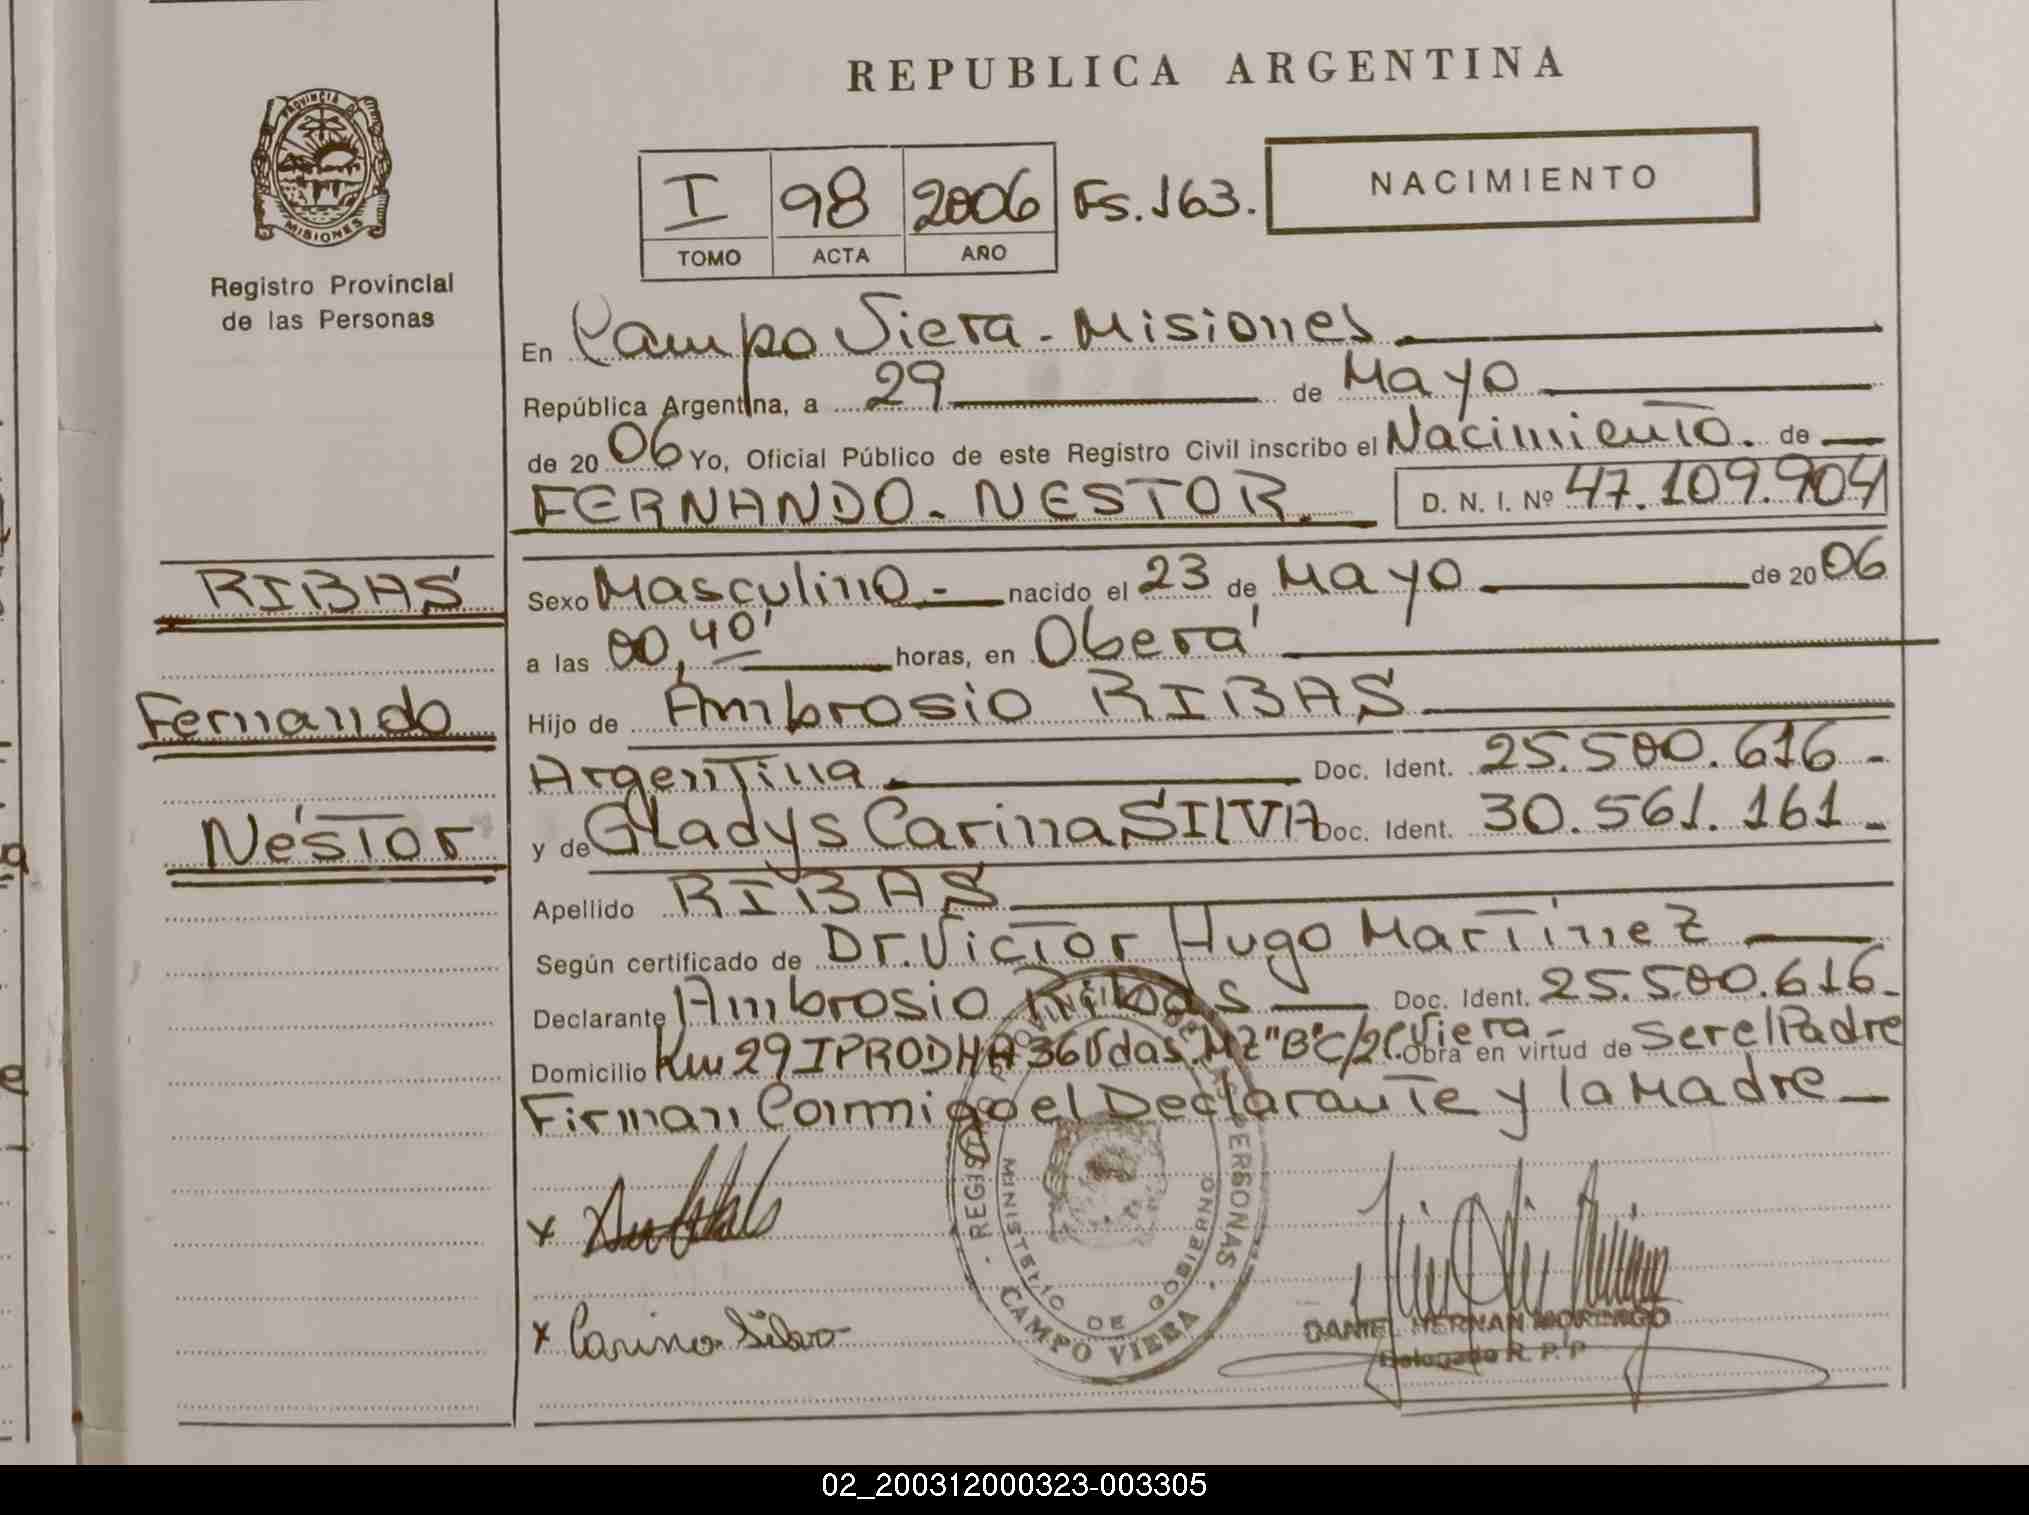 REPUBLICA ARGENTINA
PROVINCIA DE
MISIONES
Registro Provincial
de las Personas
I 98 2006 Fs. 163.
TOMO ACTA AÑO
NACIMIENTO
En Campo Viera - Misiones
República Argentina, a 29 de Mayo
de 20 06 Yo, Oficial Público de este Registro Civil inscribo el Nacimiento. de
FERNANDO - NESTOR. D. N. I. Nº 47.109.904
RIBAS
Fernando
Néstor
Sexo Masculino - nacido el 23 de Mayo de 20 06
a las 00,40' horas, en Oberá
Hijo de Ambrosio RIBAS
Argentina Doc. Ident. 25.500.616 -
y de Gladys Carina SILVA Doc. Ident. 30.561.161 -
Apellido RIBAS
Según certificado de Dr. Victor Hugo Martinez
Declarante Ambrosio Ribas Doc. Ident. 25.500.616 -
Domicilio Km 29 IPRODHA 36 Vdas. MZ "B" C/2 C. Viera - Obra en virtud de ser el Padre
Firman Conmigo el Declarante y la Madre
REGISTRO PROVINCIAL DE LAS PERSONAS
MINISTERIO DE GOBIERNO
CAMPO VIERA
x
x Carina Silva
DANIEL HERNAN MORINIGO
Delegado R. P. P
02_200312000323-003305